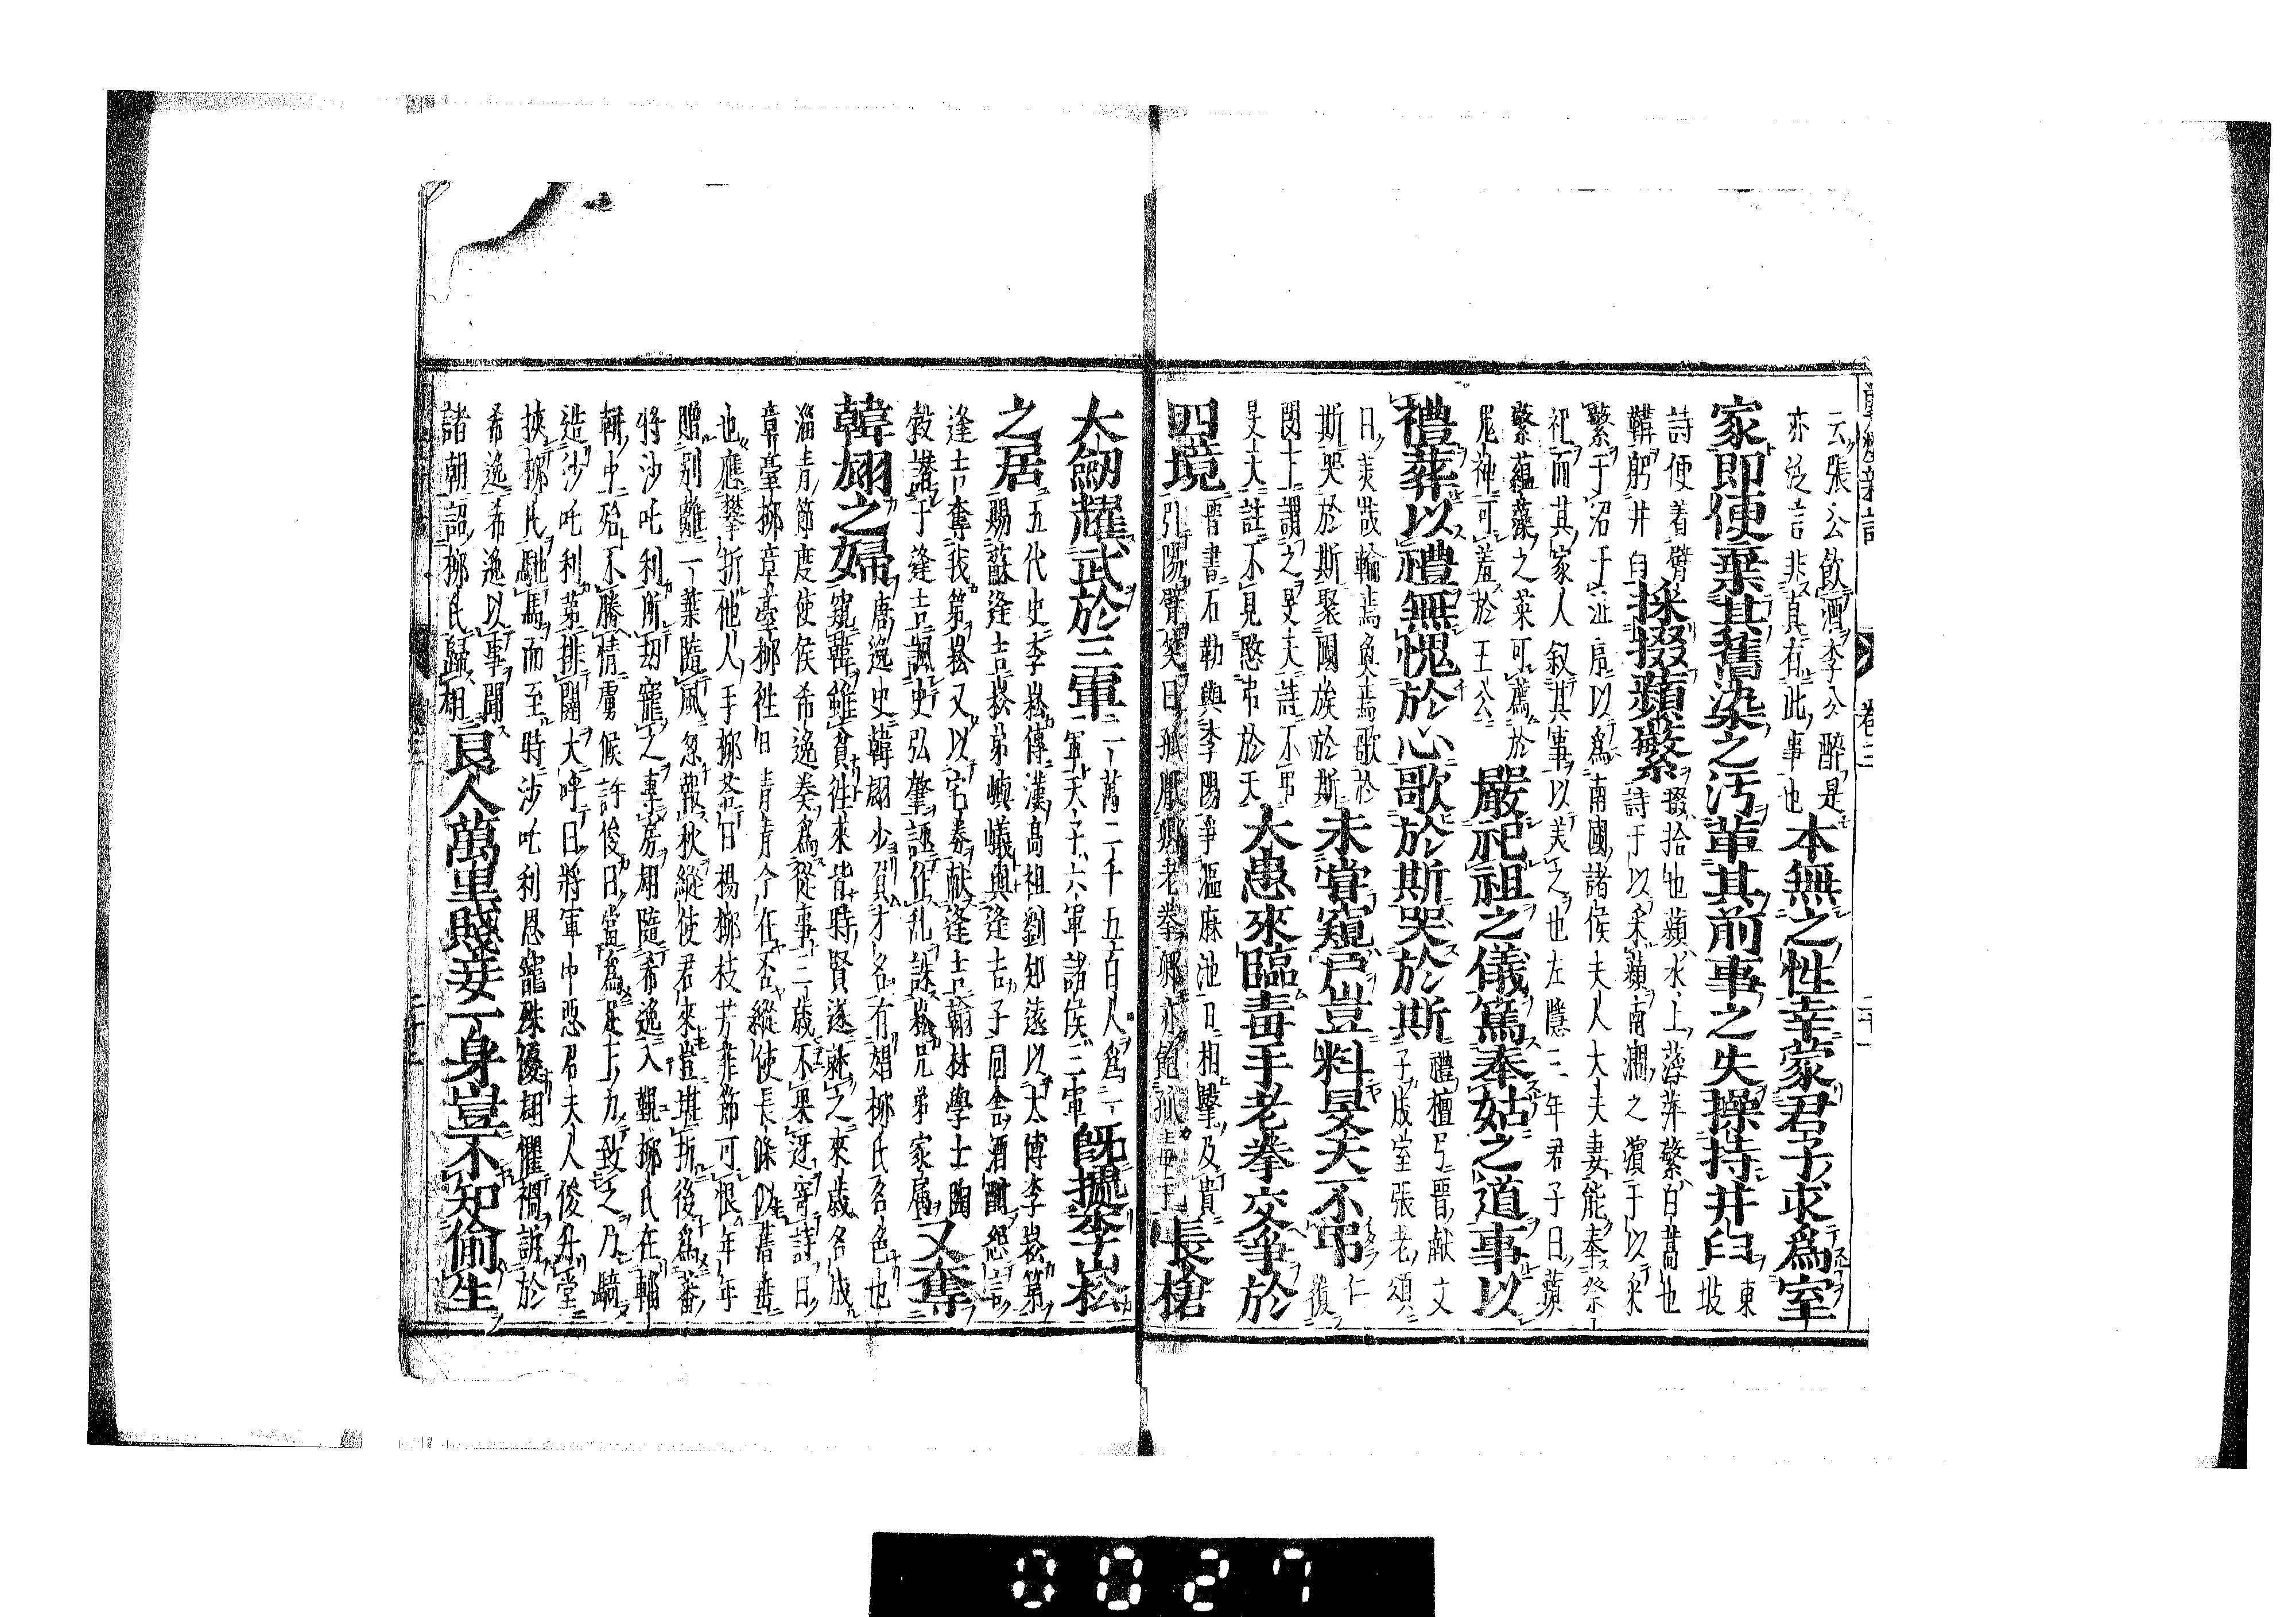 云張公飲酒李公醉是
亦泛言非真有此事也
本無之性幸蒙君子求爲室
家即使棄其舊染之汚革其前事之失操持井臼
東
坡
詩便着臂
鞲躬井臼
採掇蘋蘩
掇拾也蘋水上萍蘩白蒿也
詩于以采蘋南澗之濱于以采
蘩于沼于沚序以爲南國諸侯夫人大夫妻能奉祭
祀而其家人叙其事以美之也左隱三年君子曰蘋
蘩蘊藻之菜可薦於
鬼神可羞於王公
嚴祀祖之儀篤奉姑之道事以
禮葬以禮無愧於心歌於斯哭於斯
禮檀弓晉献文
子成室張老頌
曰美哉輪焉奐焉歌於
斯哭於斯聚國族於斯
未甞窺戶豈料旻天不弔
仁
覆
閔上謂之旻天詩不弔
旻天註不見愍弔於天
大患來臨毒手老拳交爭於
四境
晋書石勒與李陽爭漚麻池日相擊及貴
引陽臂笑曰孤厭卿老拳卿亦飽孤毒手
長槍
大劔耀武於三軍
二萬二千五百人爲
一軍天子六軍諸侯三軍
旣據李崧
之居
五代史李崧傳漢高祖劉知遠以太傅李崧第
賜蘇逢吉崧弟嶼㠖與逢吉子同舍酒酣怨言
逢吉奪我第崧又以宅券献逢吉翰林學士陶
穀譖于逢吉諷史弘肇誣作乱誅崧兄弟家属
又奪
韓翃之婦
唐逸史韓翃少負才名有娼柳氏名色也
窺韓雖貧往來皆時賢遂就之來歳名成
淄青節度使侯希逸奏爲從事三歳不果迓寄詩曰
章臺柳章臺柳往日青青今在否縱使長條似舊垂
也應攀折他人手柳荅曰楊柳枝芳菲節可恨年年
贈别離一葉隨風忽報秋縱使君來豈堪折後爲蕃
將沙吒利所刧寵之專房翃隨希逸入覲柳氏在輜
軿中殆不勝情虞候許俊曰當爲足上力致之乃騎
造沙吒利第排闥大呼曰將軍中惡召夫人俊升堂
挾柳氏馳馬而至時沙吒利恩寵殊優翃懼禍訴於
希逸希逸以事聞
諸朝詔柳氏歸翃
良人萬里賤妾一身豈不知偷生